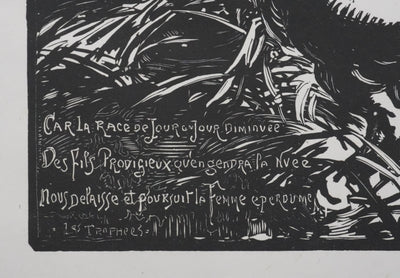 Car la race de jour en jour diminuée
Des fils prodigieux qu'engendra la Nuée
Nous delaisse et poursuit la femme eperdument
Les Trophées